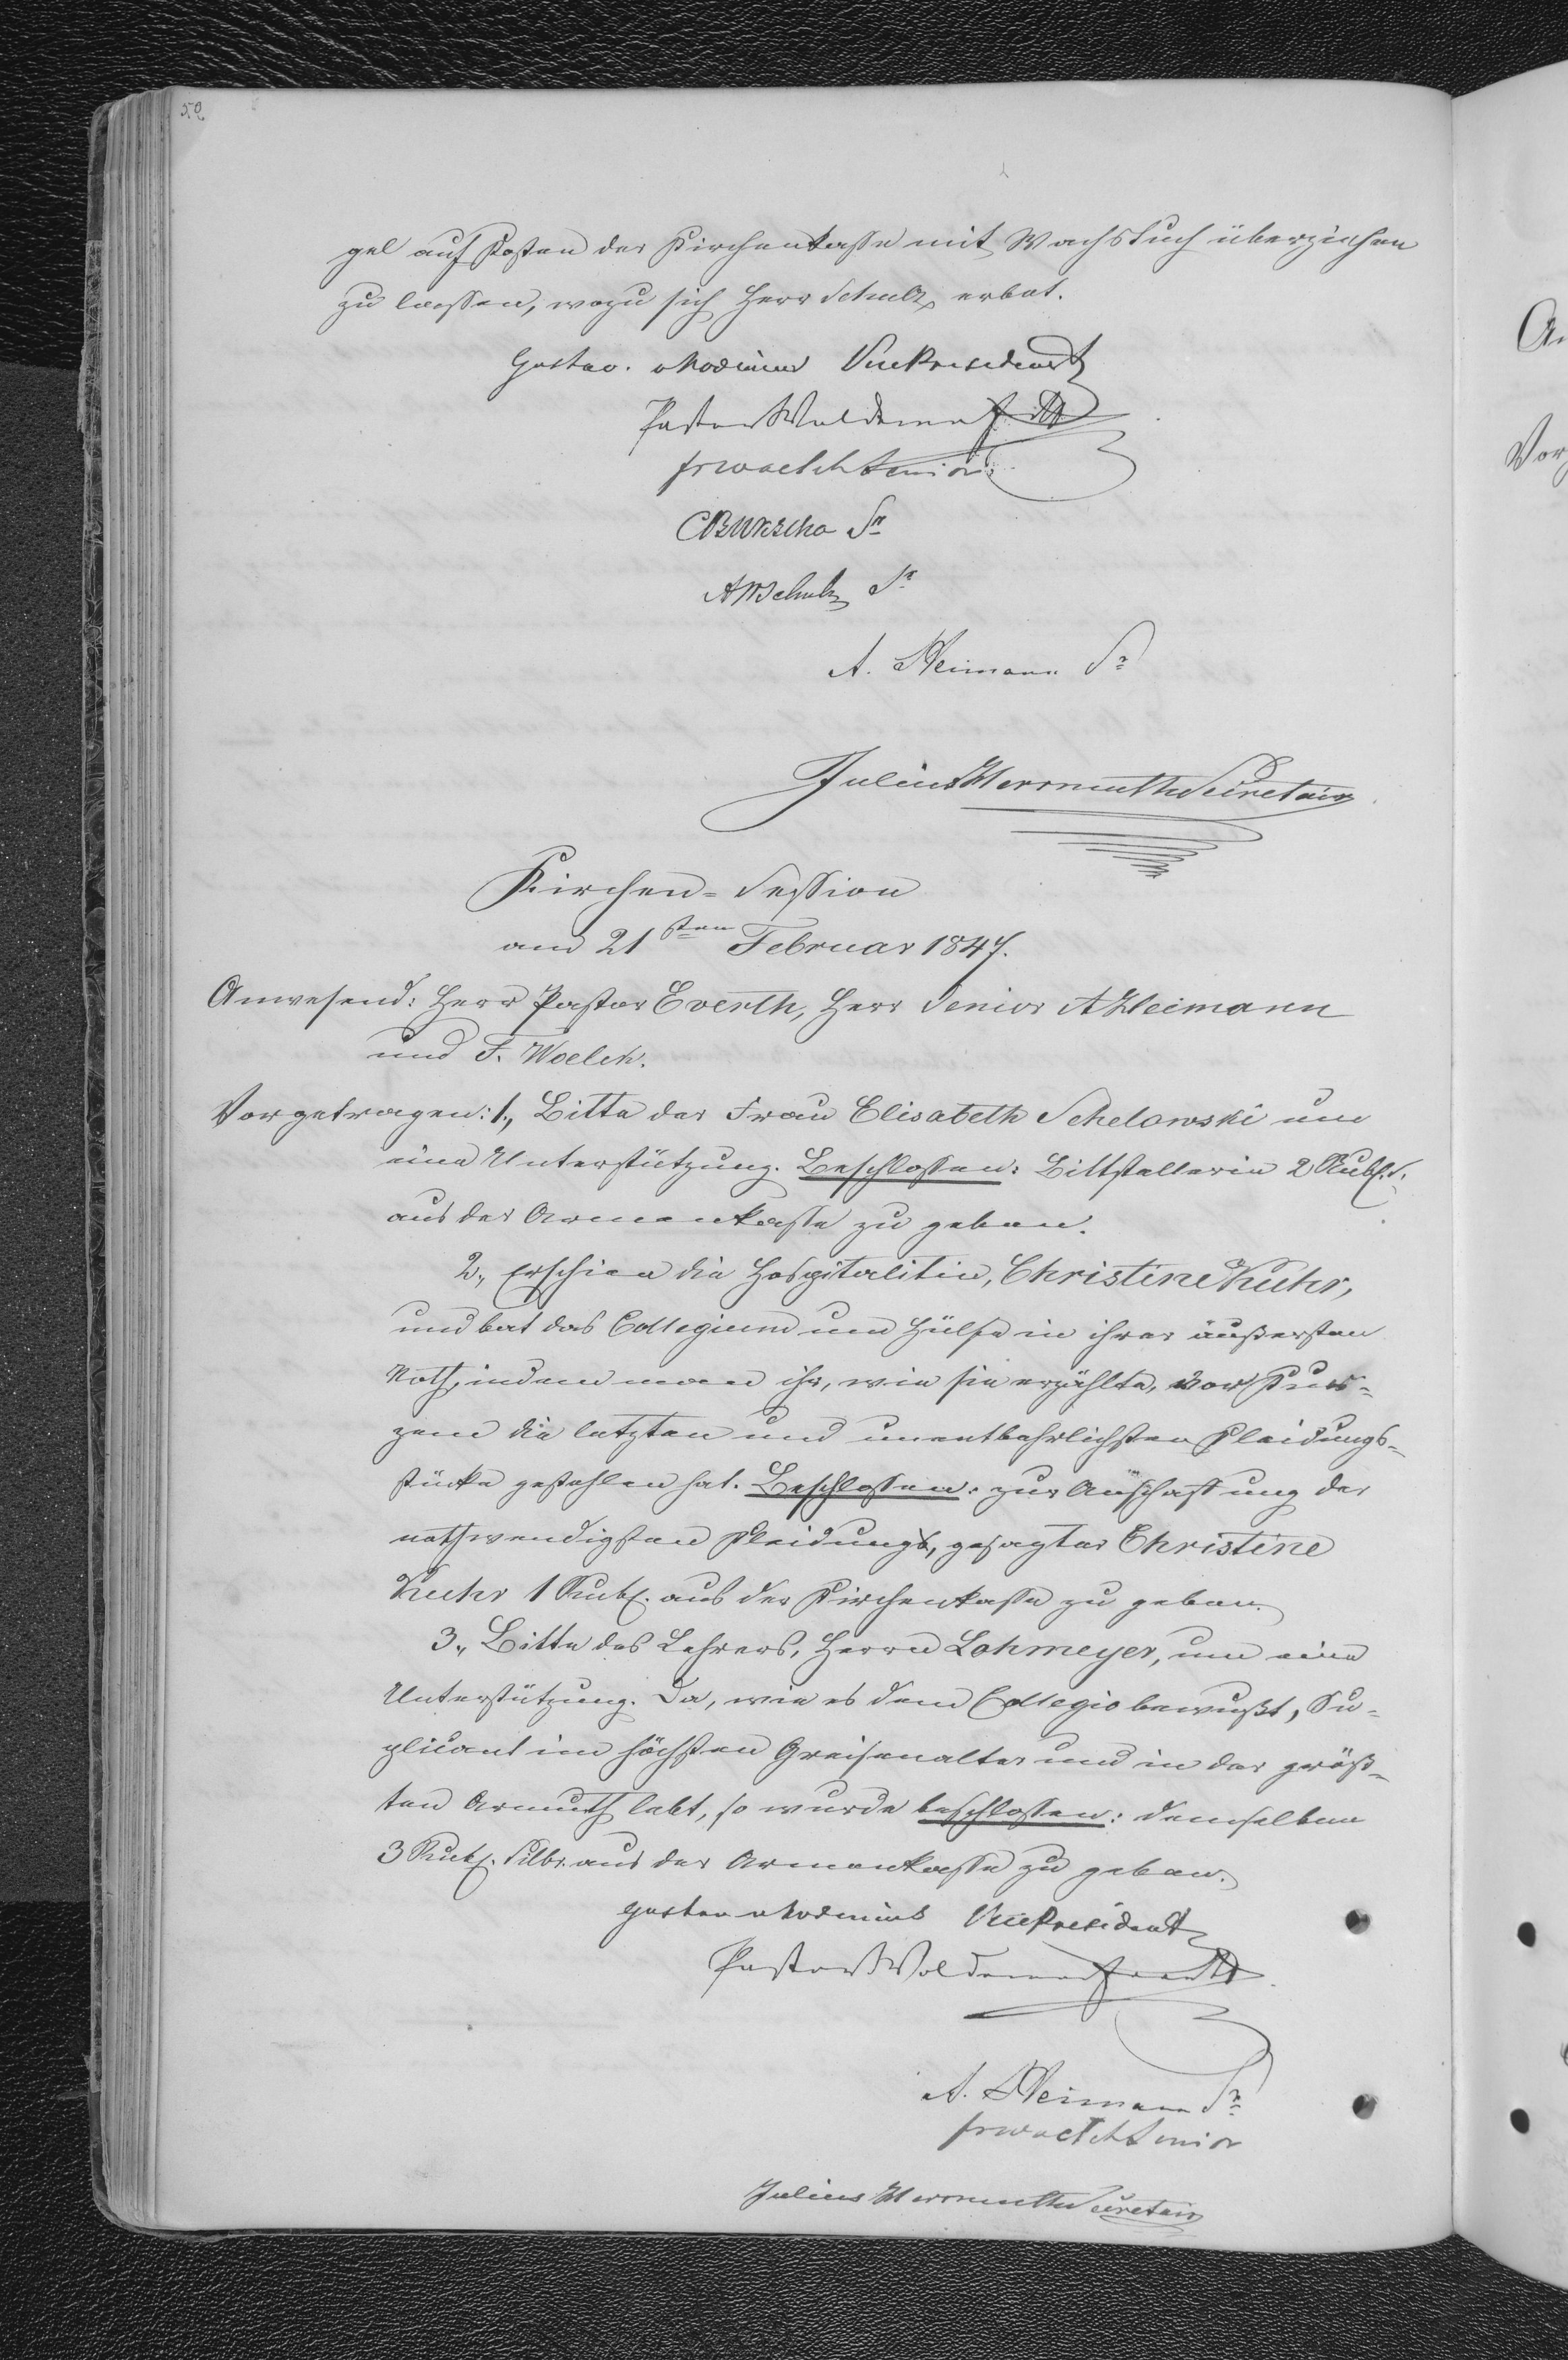 52
gel auf Kosten der Kirchenkasse mit Wachstuch überziehen
zu lassen, wozu sich Herr Schulz erbot.
Gustav Vicepresident
Pastor Woldemar Everth
F. Woelck Senior
A W Schulz Sr
A. Heimann Sr
Julius Herrmuth Secretair
Kirchen-Session
am 21sten Februar 1847.
Anwesend: Herr Pastor Everth, Herr Senior A Heimann
und F. Woelck.
Vorgetragen: 1., Bitte der Frau Elisabeth Schelowski um
eine Unterstützung. Beschlossen: Bittstellerin 2 Rub. S.
aus der Armenkasse zu geben.
2., Erschien die Hospitalitin, Christine Kuhr,
und bat das Collegium um Hülfe in ihrer äußersten
Noth, indem man ihr, wie sie erzählte, vor Kur-
zem die letzten und unentbehrlichsten Kleidungs-
stücke gestohlen hat. Beschlossen: zur Anschaffung der
nothwendigsten Kleidung, gesagter Christine
Kuhr 1 Rub. aus der Kirchenkasse zu geben.
3., Bitte des Lehrers, Herrn Lohmeyer, um eine
Unterstützung. Da, wie es dem Collegio bewußt, Su-
plicant im höchsten Greisenalter und in der größ-
ten Armuth lebt, so wurde beschlossen: demselben
3 Rub. Silbr. aus der Armenkasse zu geben.
Gustav Vicepresident
Pastor Woldemar Everth
A. Heimann Sr
F. Woelck Senior
Julius Herrmuth Secretair
An
Vor